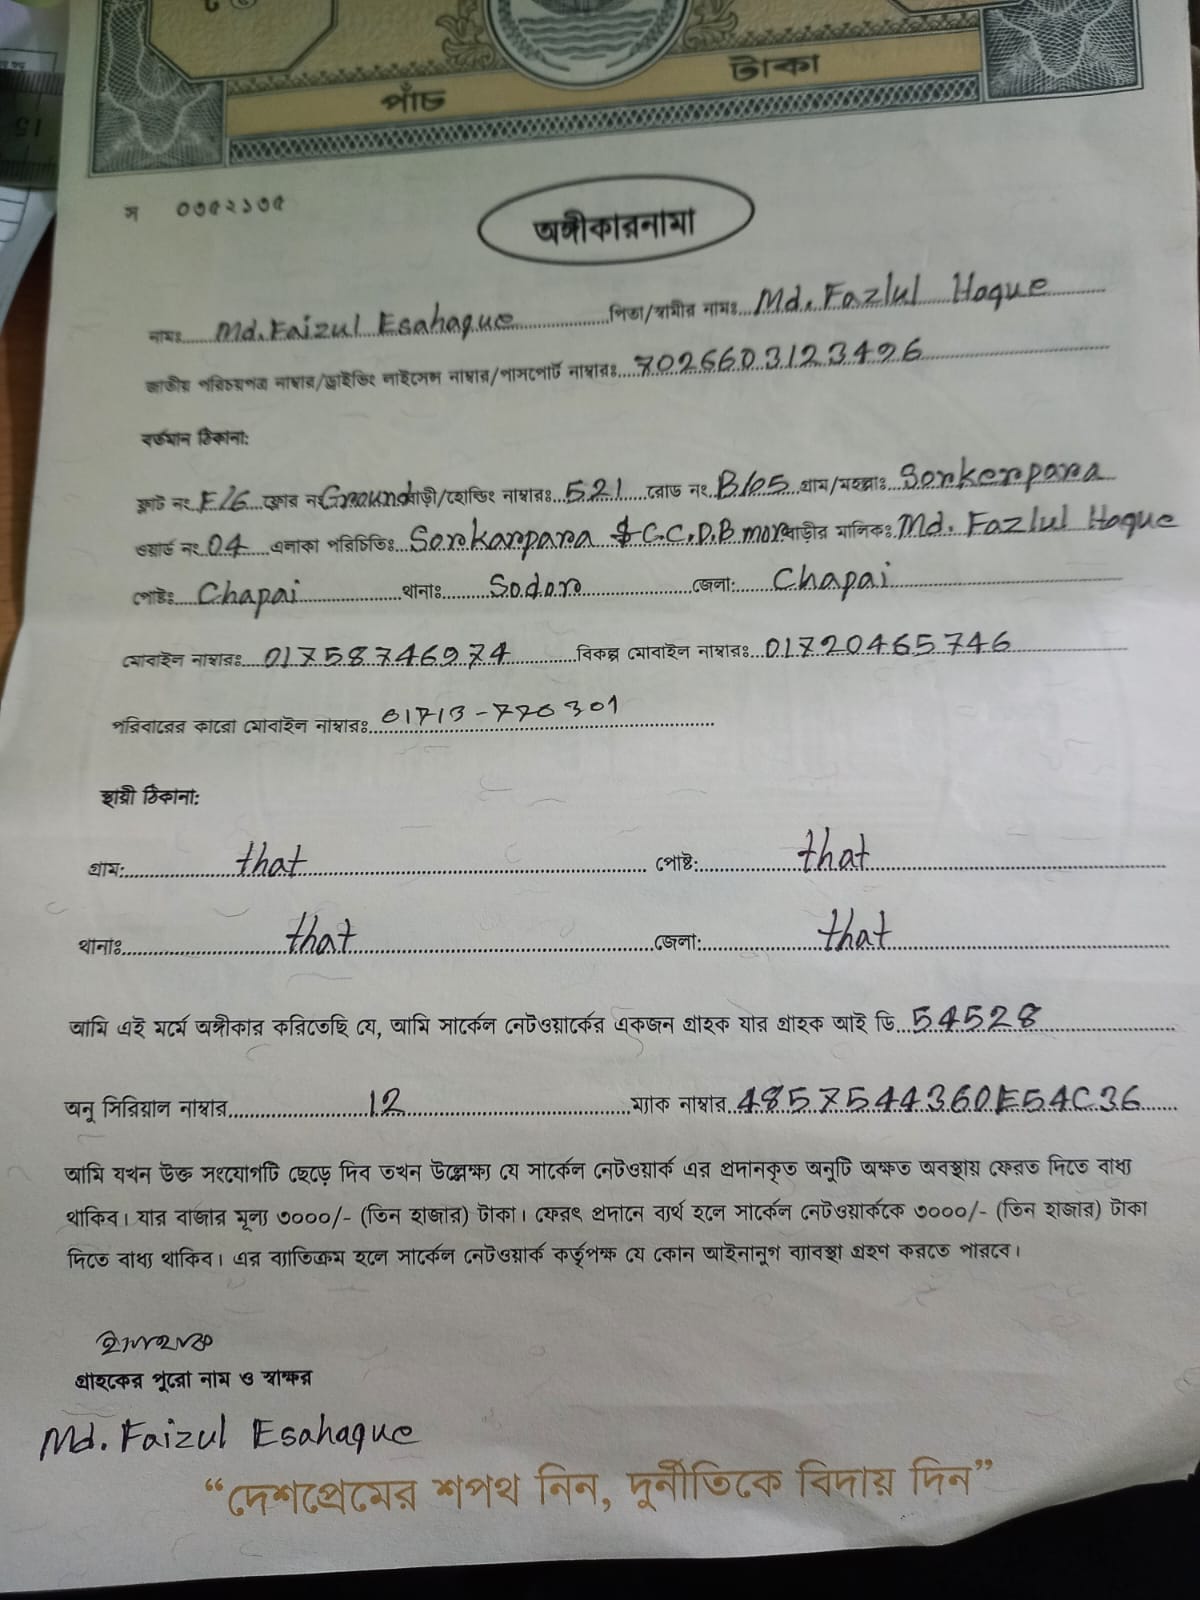 পাঁচ টাকা
স ০৩৫২১৩৫
অঙ্গীকারনামা
নামঃ Md. Faizul Esahaque পিতা/স্বামীর নামঃ Md. Fazlul Haque
জাতীয় পরিচয়পত্র নাম্বার/ড্রাইভিং লাইসেন্স নাম্বার/পাসপোর্ট নাম্বারঃ 7026603123496
বর্তমান ঠিকানা:
ফ্লাট নং F/6 ফ্লোর নং Ground বাড়ী/হোল্ডিং নাম্বারঃ 521 রোড নং B/05 গ্রাম/মহল্লাঃ Sonkerpara
ওয়ার্ড নং 04 এলাকা পরিচিতিঃ Sonkarpara & C.C.D.B mor বাড়ীর মালিকঃ Md. Fazlul Haque
পোষ্টঃ Chapai থানাঃ Sodor জেলা: Chapai
মোবাইল নাম্বারঃ 01758746974 বিকল্প মোবাইল নাম্বারঃ 01720465746
পরিবারের কারো মোবাইল নাম্বারঃ 01713-770301
স্থায়ী ঠিকানা:
গ্রাম: that পোষ্ট: that
থানাঃ that জেলা: that
আমি এই মর্মে অঙ্গীকার করিতেছি যে, আমি সার্কেল নেটওয়ার্কের একজন গ্রাহক যার গ্রাহক আই ডি 54528
অনু সিরিয়াল নাম্বার 12 ম্যাক নাম্বার 4857544360E54C36
আমি যখন উক্ত সংযোগটি ছেড়ে দিব তখন উল্লেক্ষ্য যে সার্কেল নেটওয়ার্ক এর প্রদানকৃত অনুটি অক্ষত অবস্থায় ফেরত দিতে বাধ্য
থাকিব। যার বাজার মূল্য ৩০০০/- (তিন হাজার) টাকা। ফেরৎ প্রদানে ব্যর্থ হলে সার্কেল নেটওয়ার্ককে ৩০০০/- (তিন হাজার) টাকা
দিতে বাধ্য থাকিব। এর ব্যাতিক্রম হলে সার্কেল নেটওয়ার্ক কর্তৃপক্ষ যে কোন আইনানুগ ব্যাবস্থা গ্রহণ করতে পারবে।
ইসাহাক
গ্রাহকের পুরো নাম ও স্বাক্ষর
Md. Faizul Esahaque
“দেশপ্রেমের শপথ নিন, দুর্নীতিকে বিদায় দিন”